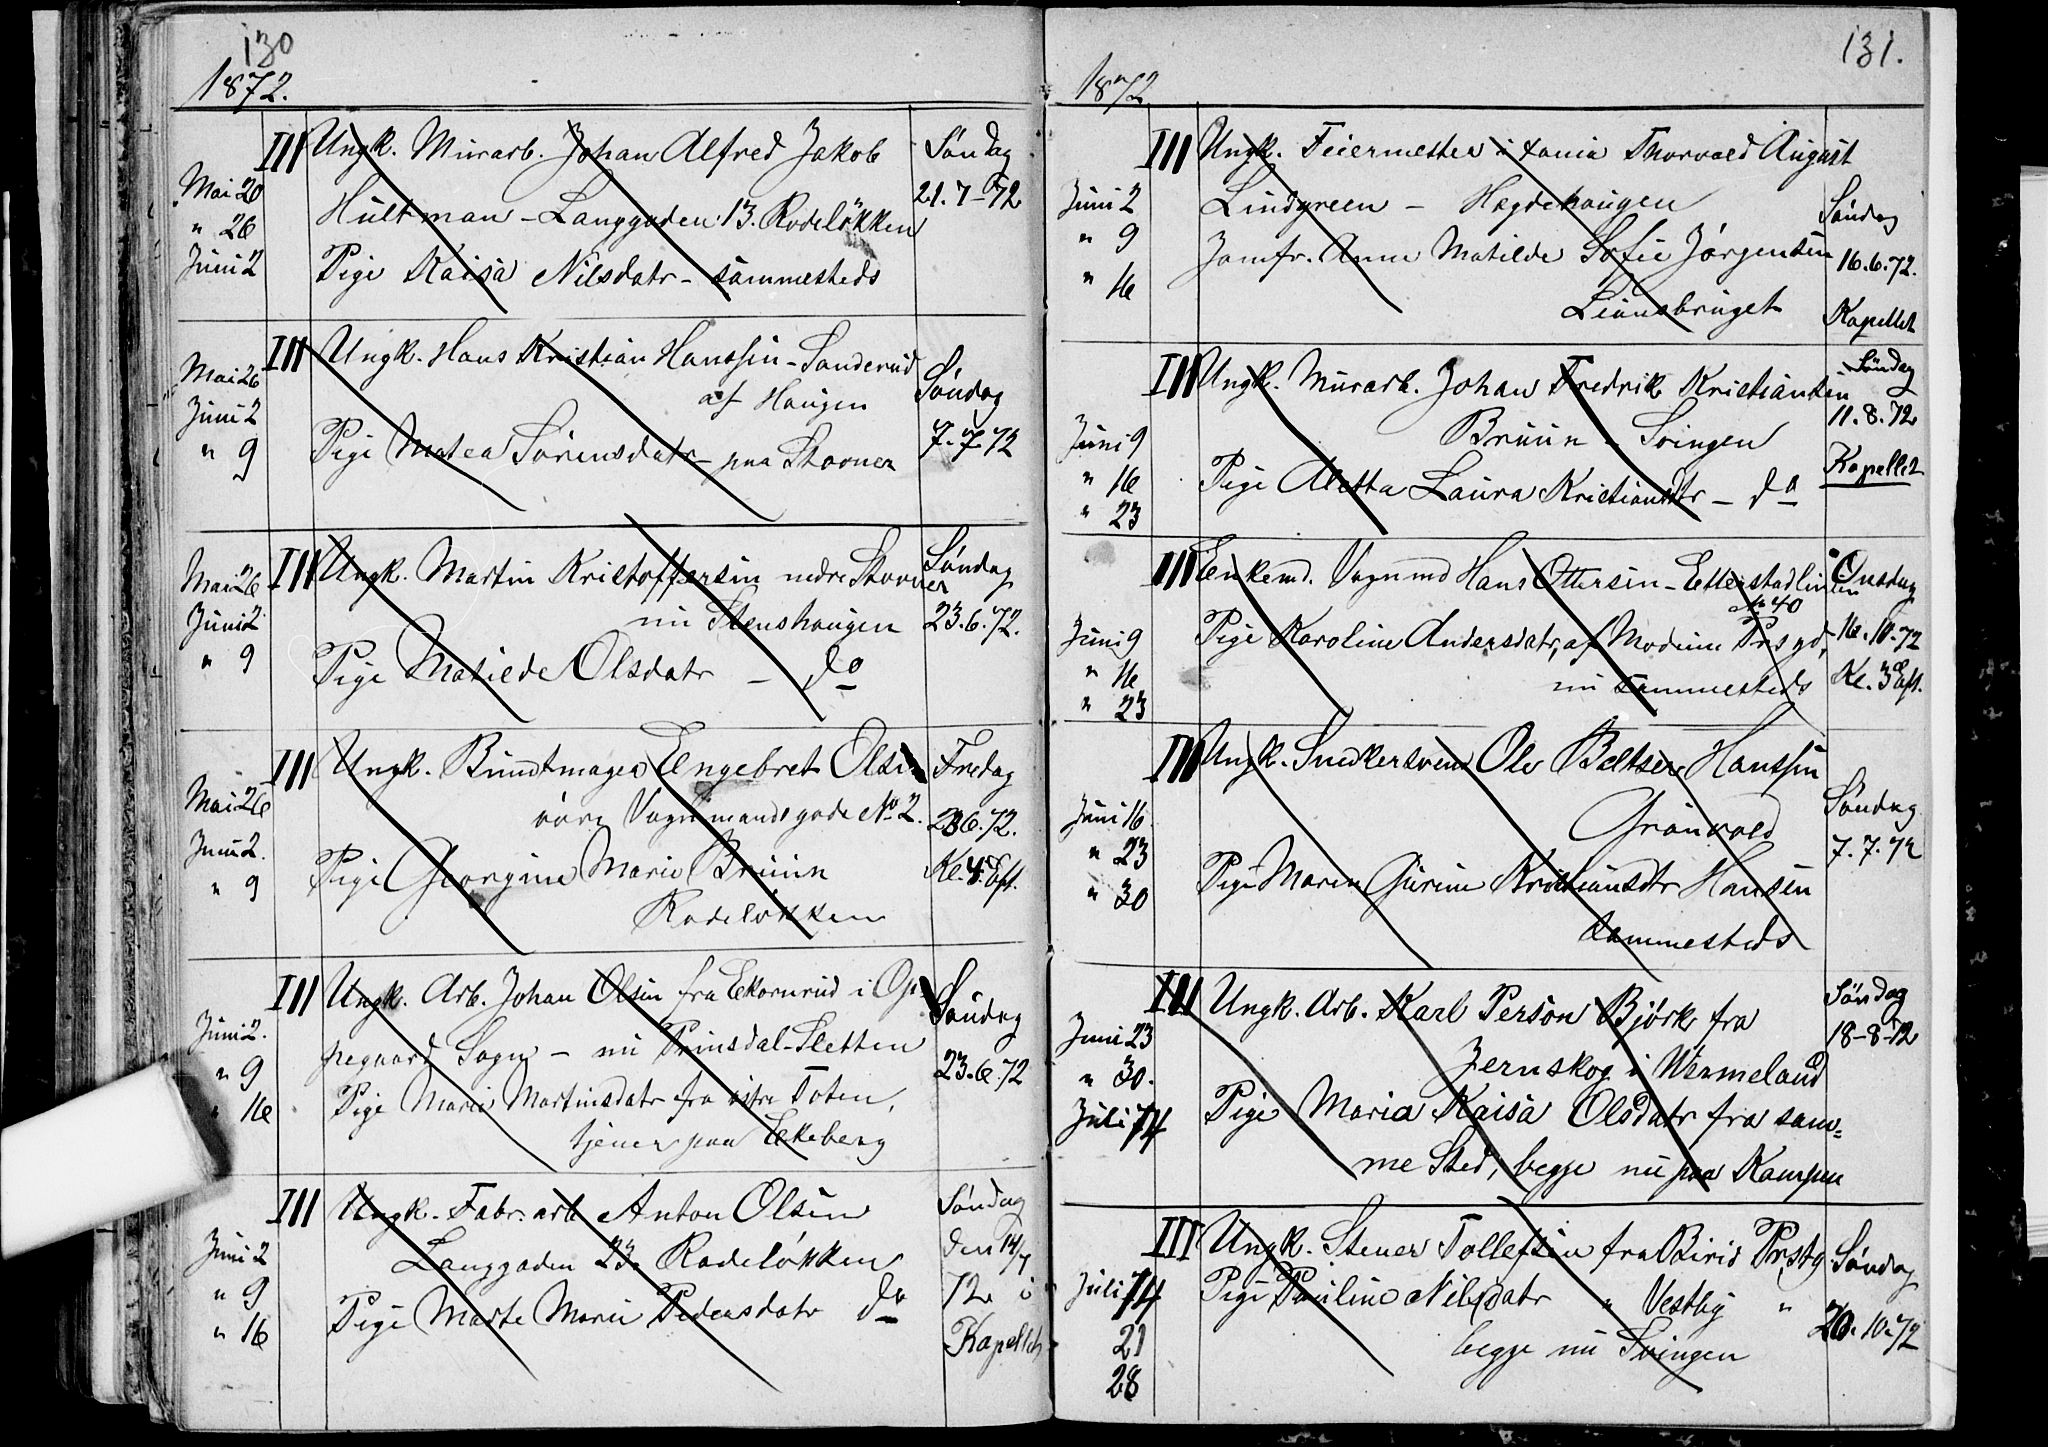 130
1872.
Mai 20
" 26
Juni 2
III Ungk. Murarb. Johan Alfred Jakob
Hultman - Langgaden 13. Rodeløkken
Pige Kaisa Nilsdatr - sammesteds
Søndag
21.7-72
Mai 26
Juni 2
" 9
III Ungk. Hans Kristian Hanssen - Sanderud
af Haugen
Pige Matea Sørensdatr - paa Stovner
Søndag
7.7.72
Mai 26
Juni 2
" 9
III Ungk. Martin Kristoffersen nedre Stovner
nu Stenshaugen
Pige Matilde Olsdatr - do
Søndag
23.6.72.
Mai 26
Juni 2.
" 9
III Ungk. Buntmager Engebret Olsen
øvre Vognmandsgade No 2.
Pige Georgine Marie Bruun
Rodeløkken
Fredag
6.72.
Kl. 4 Eft.
Juni 2.
" 9
" 16
III Ungk. Arb. Johan Olsen fra Ekornrud i Op-
pegaard Sogn - nu Prinsdal-Sletten
Pige Maria Martinsdatr fra østre Toten,
tjener paa Ekeberg
Søndag
23.6.72
Juni 2
" 9
" 16
III Ungk. Fabr. arb Anton Olsen
Langgaden 23. Rodeløkken
Pige Marte Marie Pedersdatr do
Søndag
den 14/7
72 i
Kapellet
131.
1872
Juni 2
" 9
" 16
III Ungk. Feiermester i Xania Thorvald August
Lindgreen - Hegdehaugen
Jomfr. Anna Matilde Sofie Jørgensen
Liansbruget
Søndag
16.6.72.
Kapellet
Juni 9
" 16
" 23
III Ungk. Murarb. Johan Fredrik Kristiansen
Bruun - Svingen
Pige Aletta Laura Kristiansdtr - do
Søndag
11.8.72
Kapellet
Juni 9
" 16
" 23
III Enkemd. Vognmd Hans Ottersen - Etterstadlinien
No 40
Pige Karoline Andersdatr, af Modum Prsgd,
nu sammesteds
Onsdag
16.10.72
Kl. 3 Eft.
Juni 16
" 23
" 30
III Ungk. Snedkersvend Ole Beltser Hanssen
Grønvold
Pige Maren Gurine Kristiansdtr Hansen
sammesteds
Søndag
7.7.72
Juni 23
" 30.
Juli 14
III Ungk. Arb. Karl Person Björk fra
Jernskog i Wermeland
Pige Maria Kaisa Olsdatr fra sam=
me Sted, begge nu paa Kampen
Søndag
18-8-72
Juli 14
21
28
III Ungk. Stener Tollefsen fra Birid Prstg
Pige Pauline Nilsdatr " Vestby "
begge nu Svingen
Søndag
20.10.72